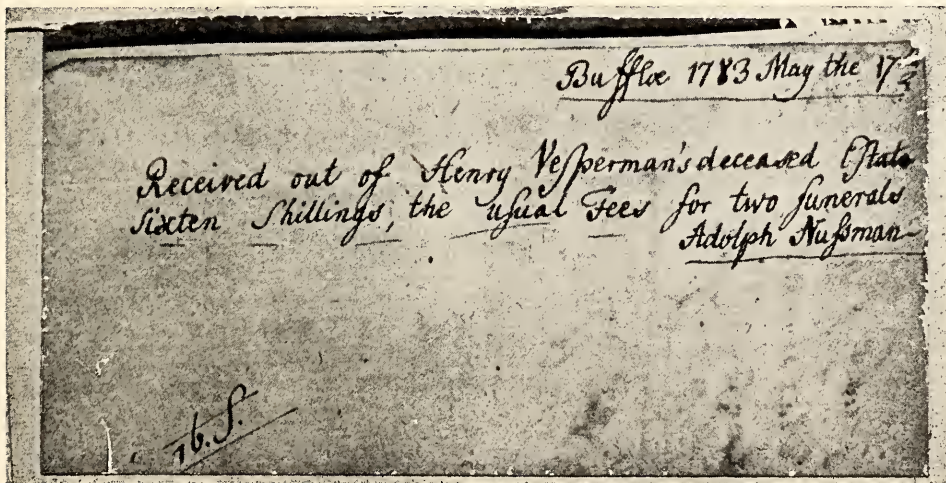 Buffloe 1783 May the 17
Received out of Henry Veſperman's deceased Eſtate
sixten Shillings, the uſual Fees for two funerals
Adolph Nuſsman
16.S.